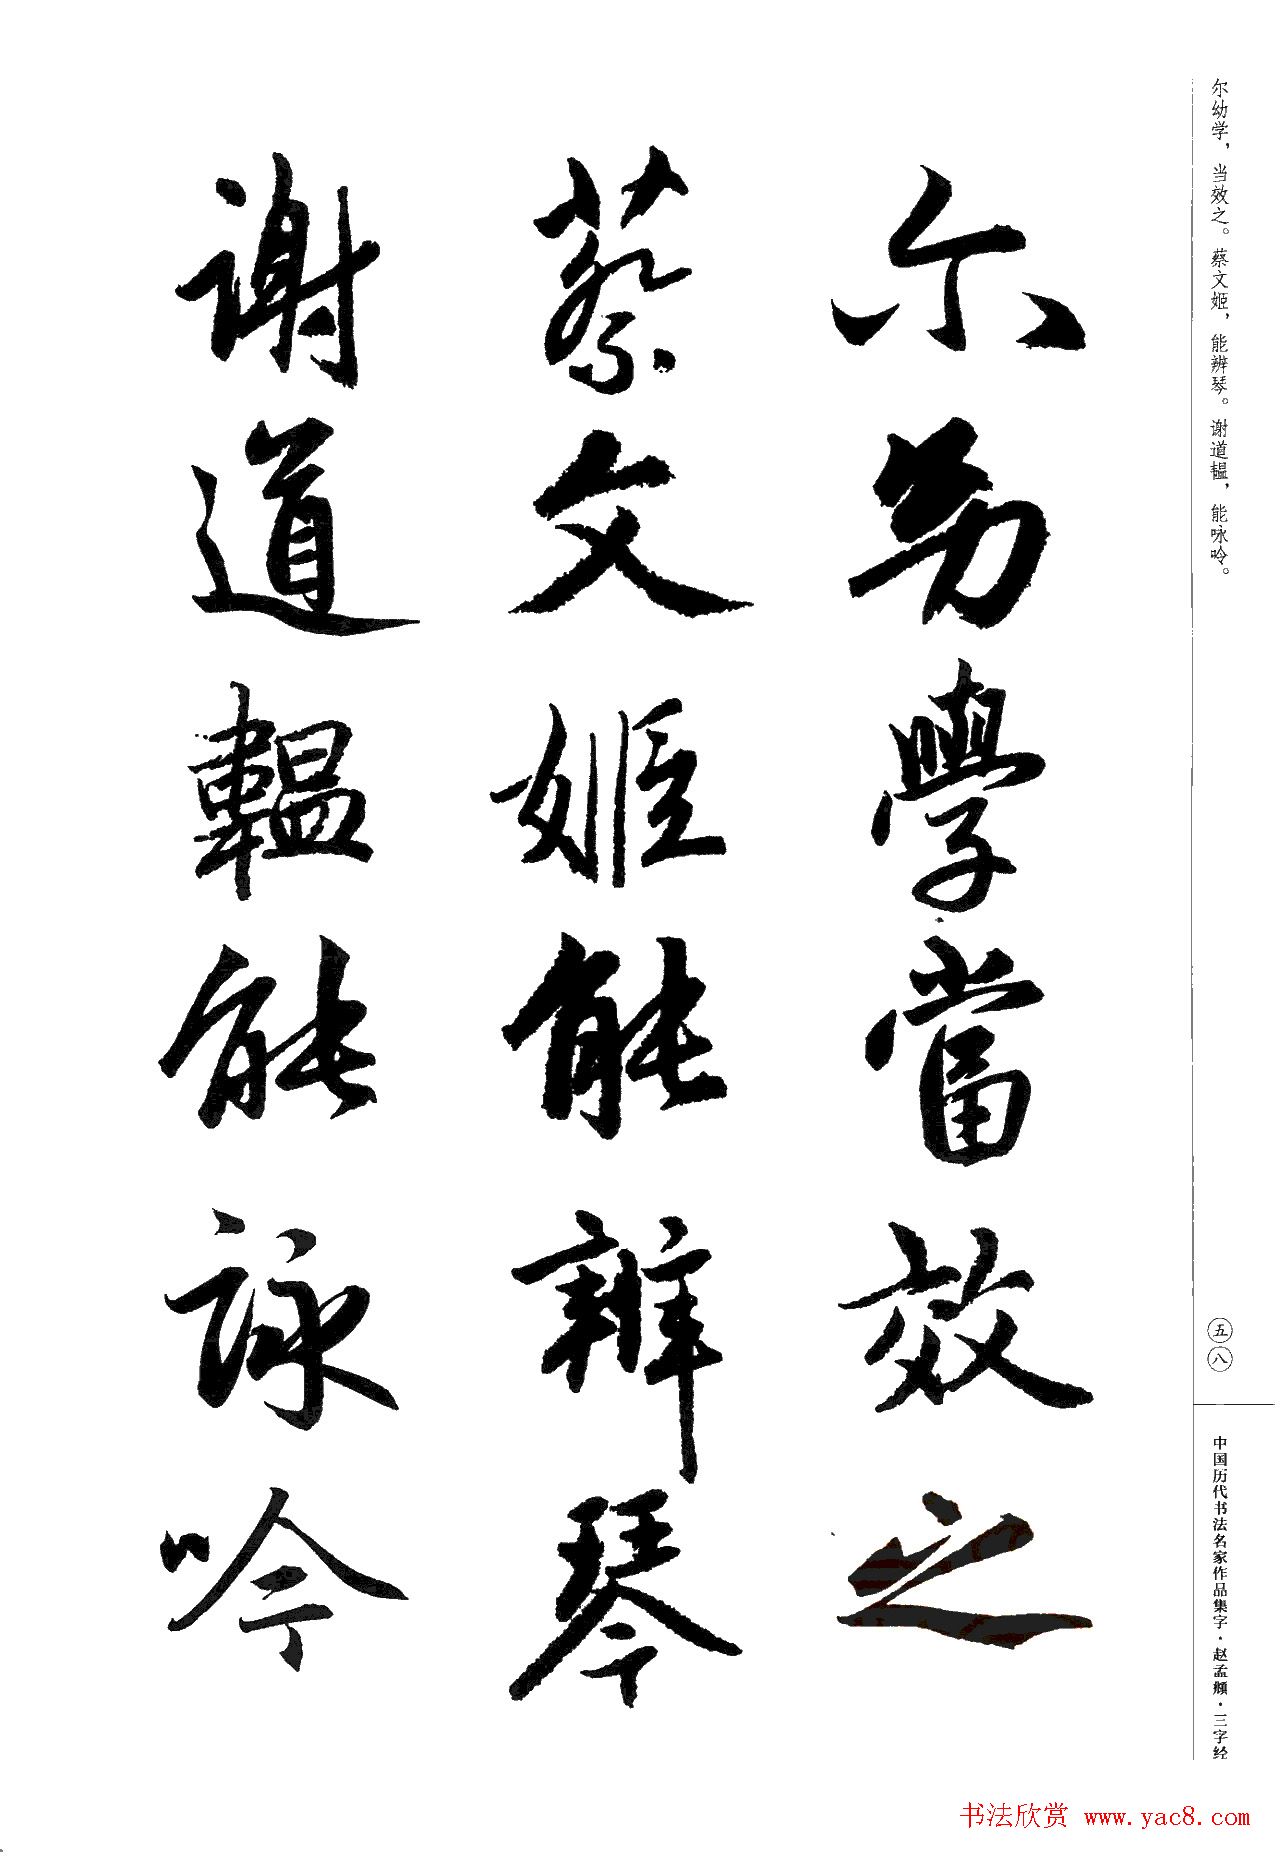 尔幼学，当效之。蔡文姬，能辨琴。谢道韫，能咏吟。
尒幼學當效之
蔡文姬能辨琴
謝道韞能詠吟
五八
中国历代书法名家作品集字·赵孟頫·三字经
书法欣赏 www.yac8.com